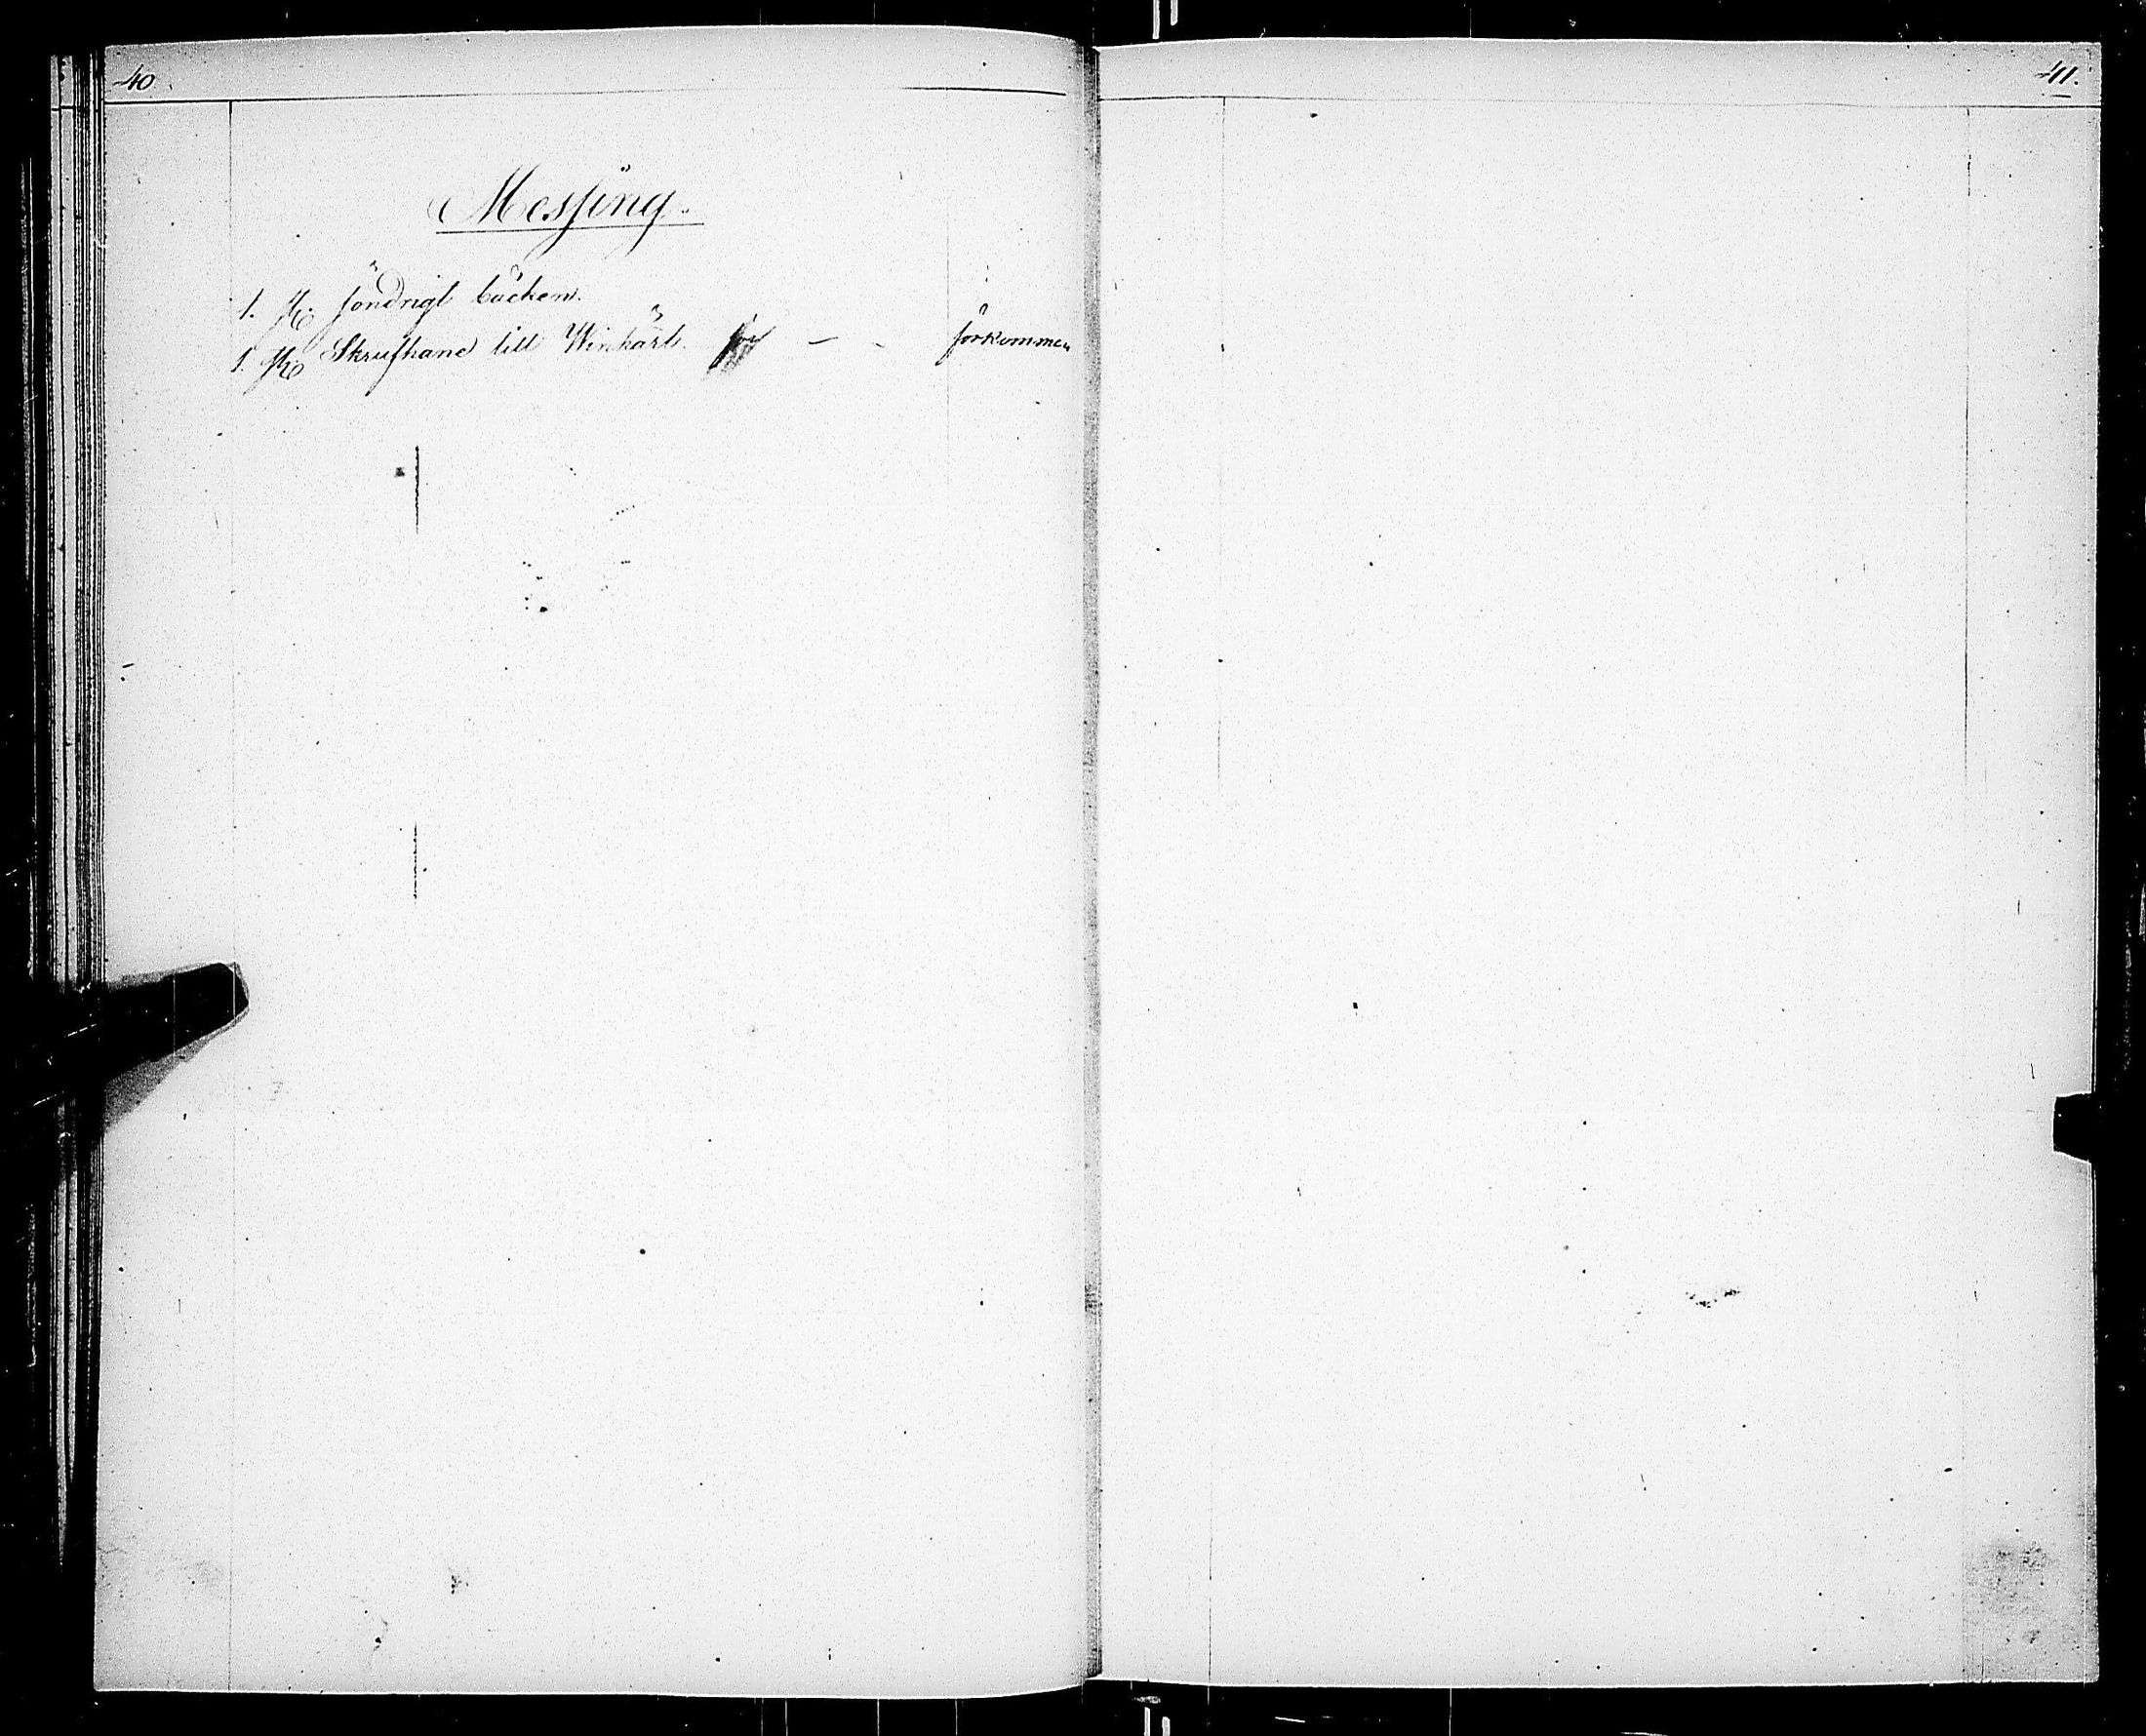 40.
Messing.
1. st. söndrigt bäcken.
1. st. Skrufhane till Winkärl. — - förkommen
41.